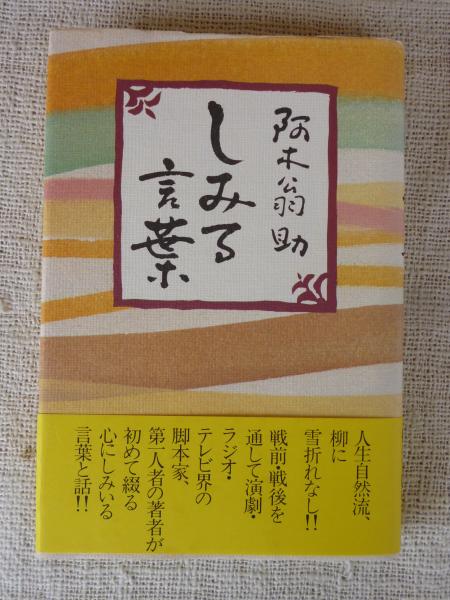 阿木翁助
しみる
言葉
人生自然流、
柳に
雪折れなし!!
戦前・戦後を
通して演劇・
ラジオ・
テレビ界の
脚本家、
第一人者の著者が
初めて綴る
心にしみいる
言葉と話!!